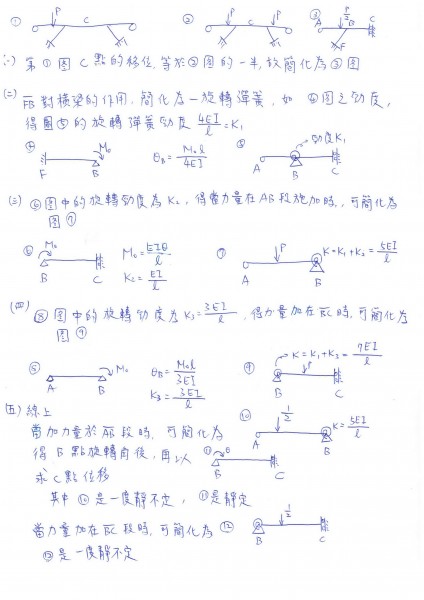 ① P C
② P P C
③ P/2 A B C F
(一) 第①圖C點的移位,等於②圖的一半,故簡化為③圖
(二) FB對橫梁的作用,簡化為一旋轉彈簧,如④圖之勁度,
得圖⑤的旋轉彈簧勁度 4EI/l = K₁
④ F B M₀ θB = M₀l/4EI ⑤ A B C 勁度K₁
(三) ⑥圖中的旋轉勁度為K₂,得當力量在AB段施加時,可簡化為
圖⑦
⑥ M₀ B C M₀ = EIθ/l K₂ = EI/l ⑦ P A B K = K₁ + K₂ = 5EI/l
(四) ⑧圖中的旋轉勁度為K₃ = 3EI/l,得力量加在BC時,可簡化為
圖⑨
⑧ A B M₀ θB = M₀l/3EI K₃ = 3EI/l ⑨ P B C K = K₁ + K₃ = 7EI/l
(五) 綜上
當加力量於AB段時,可簡化為 ⑩ 1/2 A B K = 5EI/l
得B點旋轉角後,再以 ⑪ θ B C
求C點位移
其中⑩是一度靜不定,⑪是靜定
當力量加在BC段時,可簡化為 ⑫ 1/2 B C
⑫是一度靜不定